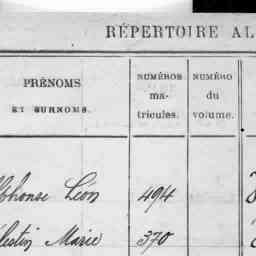 RÉPERTOIRE AL
PRÉNOMS
ET SURNOMS.
NUMÉROS
ma-
tricules.
NUMÉRO
du
volume.
lphonse Léon 494
lestin Marie 370